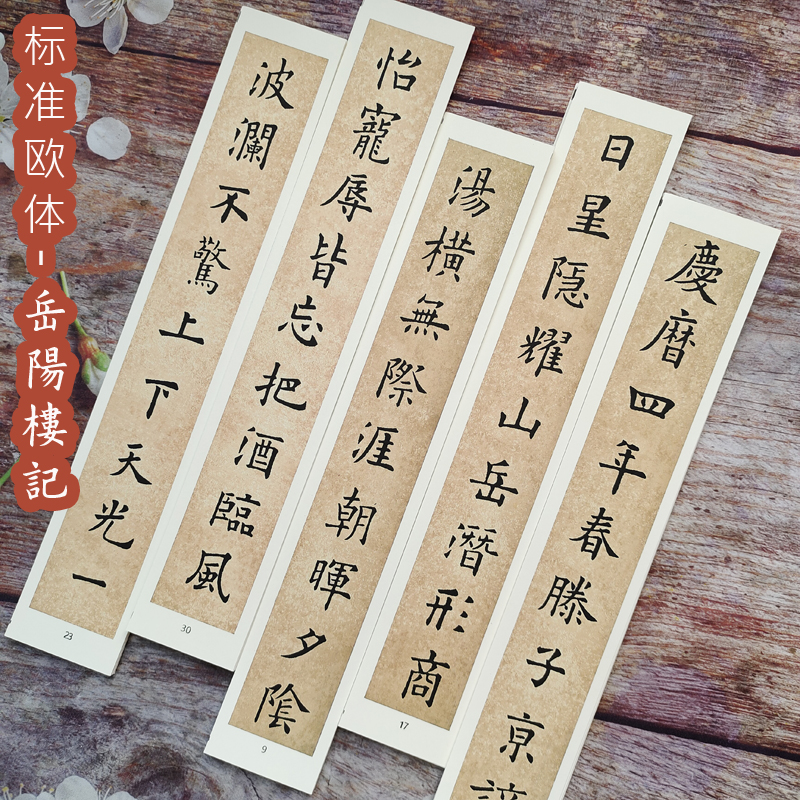 标准欧体-岳陽樓記
慶曆四年春滕子京
日星隱耀山岳潛形商
17
湯橫無際涯朝暉夕陰
9
怡寵辱皆忘把酒臨風
30
波瀾不驚上下天光一
23